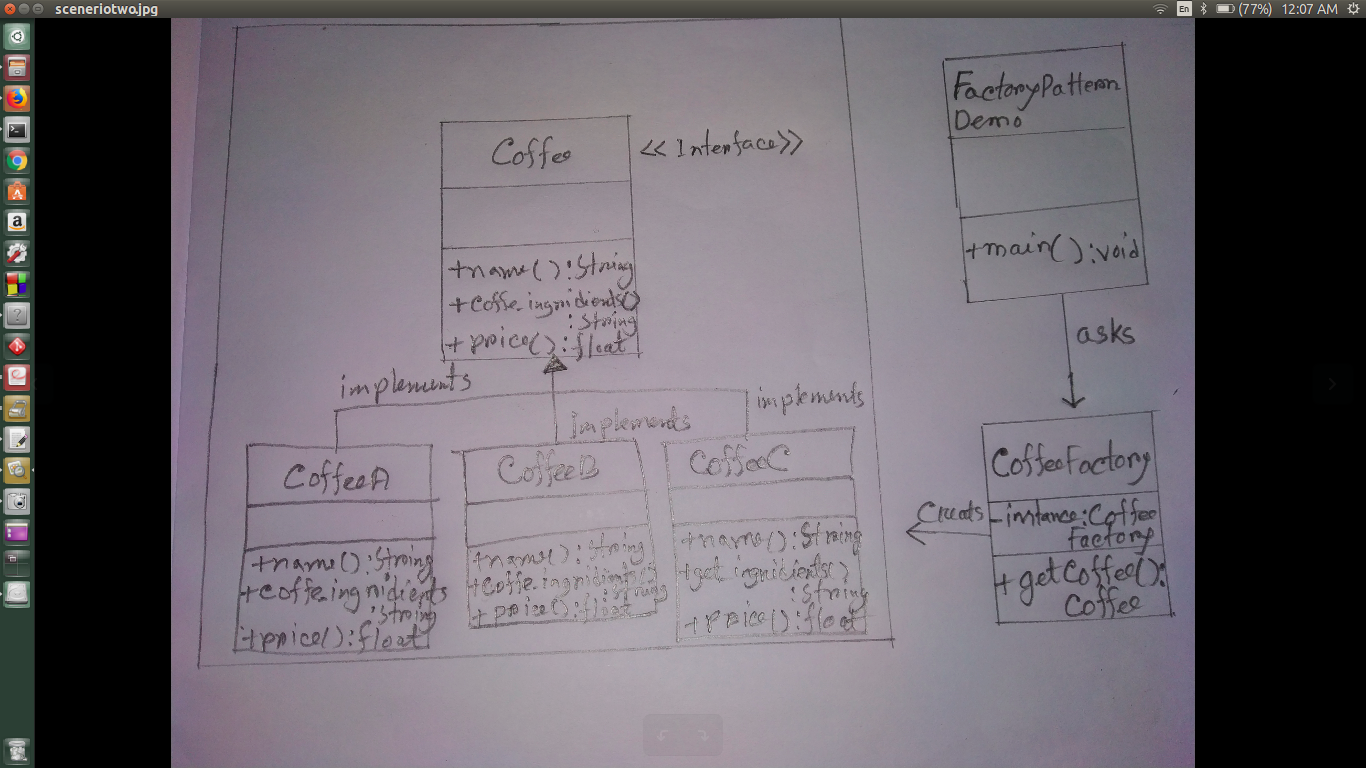 sceneriotwo.jpg
En
(77%)
12:07 AM
Coffee
<< Interface>>
+name():String
+coffe.ingridients()
:String
+price():float
implements
implements
implements
CoffeeA
+name():String
+coffe.ingridients
:String
+price():float
CoffeeB
+name():String
+coffe.ingridients
:String
+price():float
CoffeeC
+name():String
+get ingridients()
:String
+price():float
FactoryPattern
Demo
+main():void
asks
CoffeeFactory
-instance:Coffee
Factory
+getCoffee():
Coffee
Creats